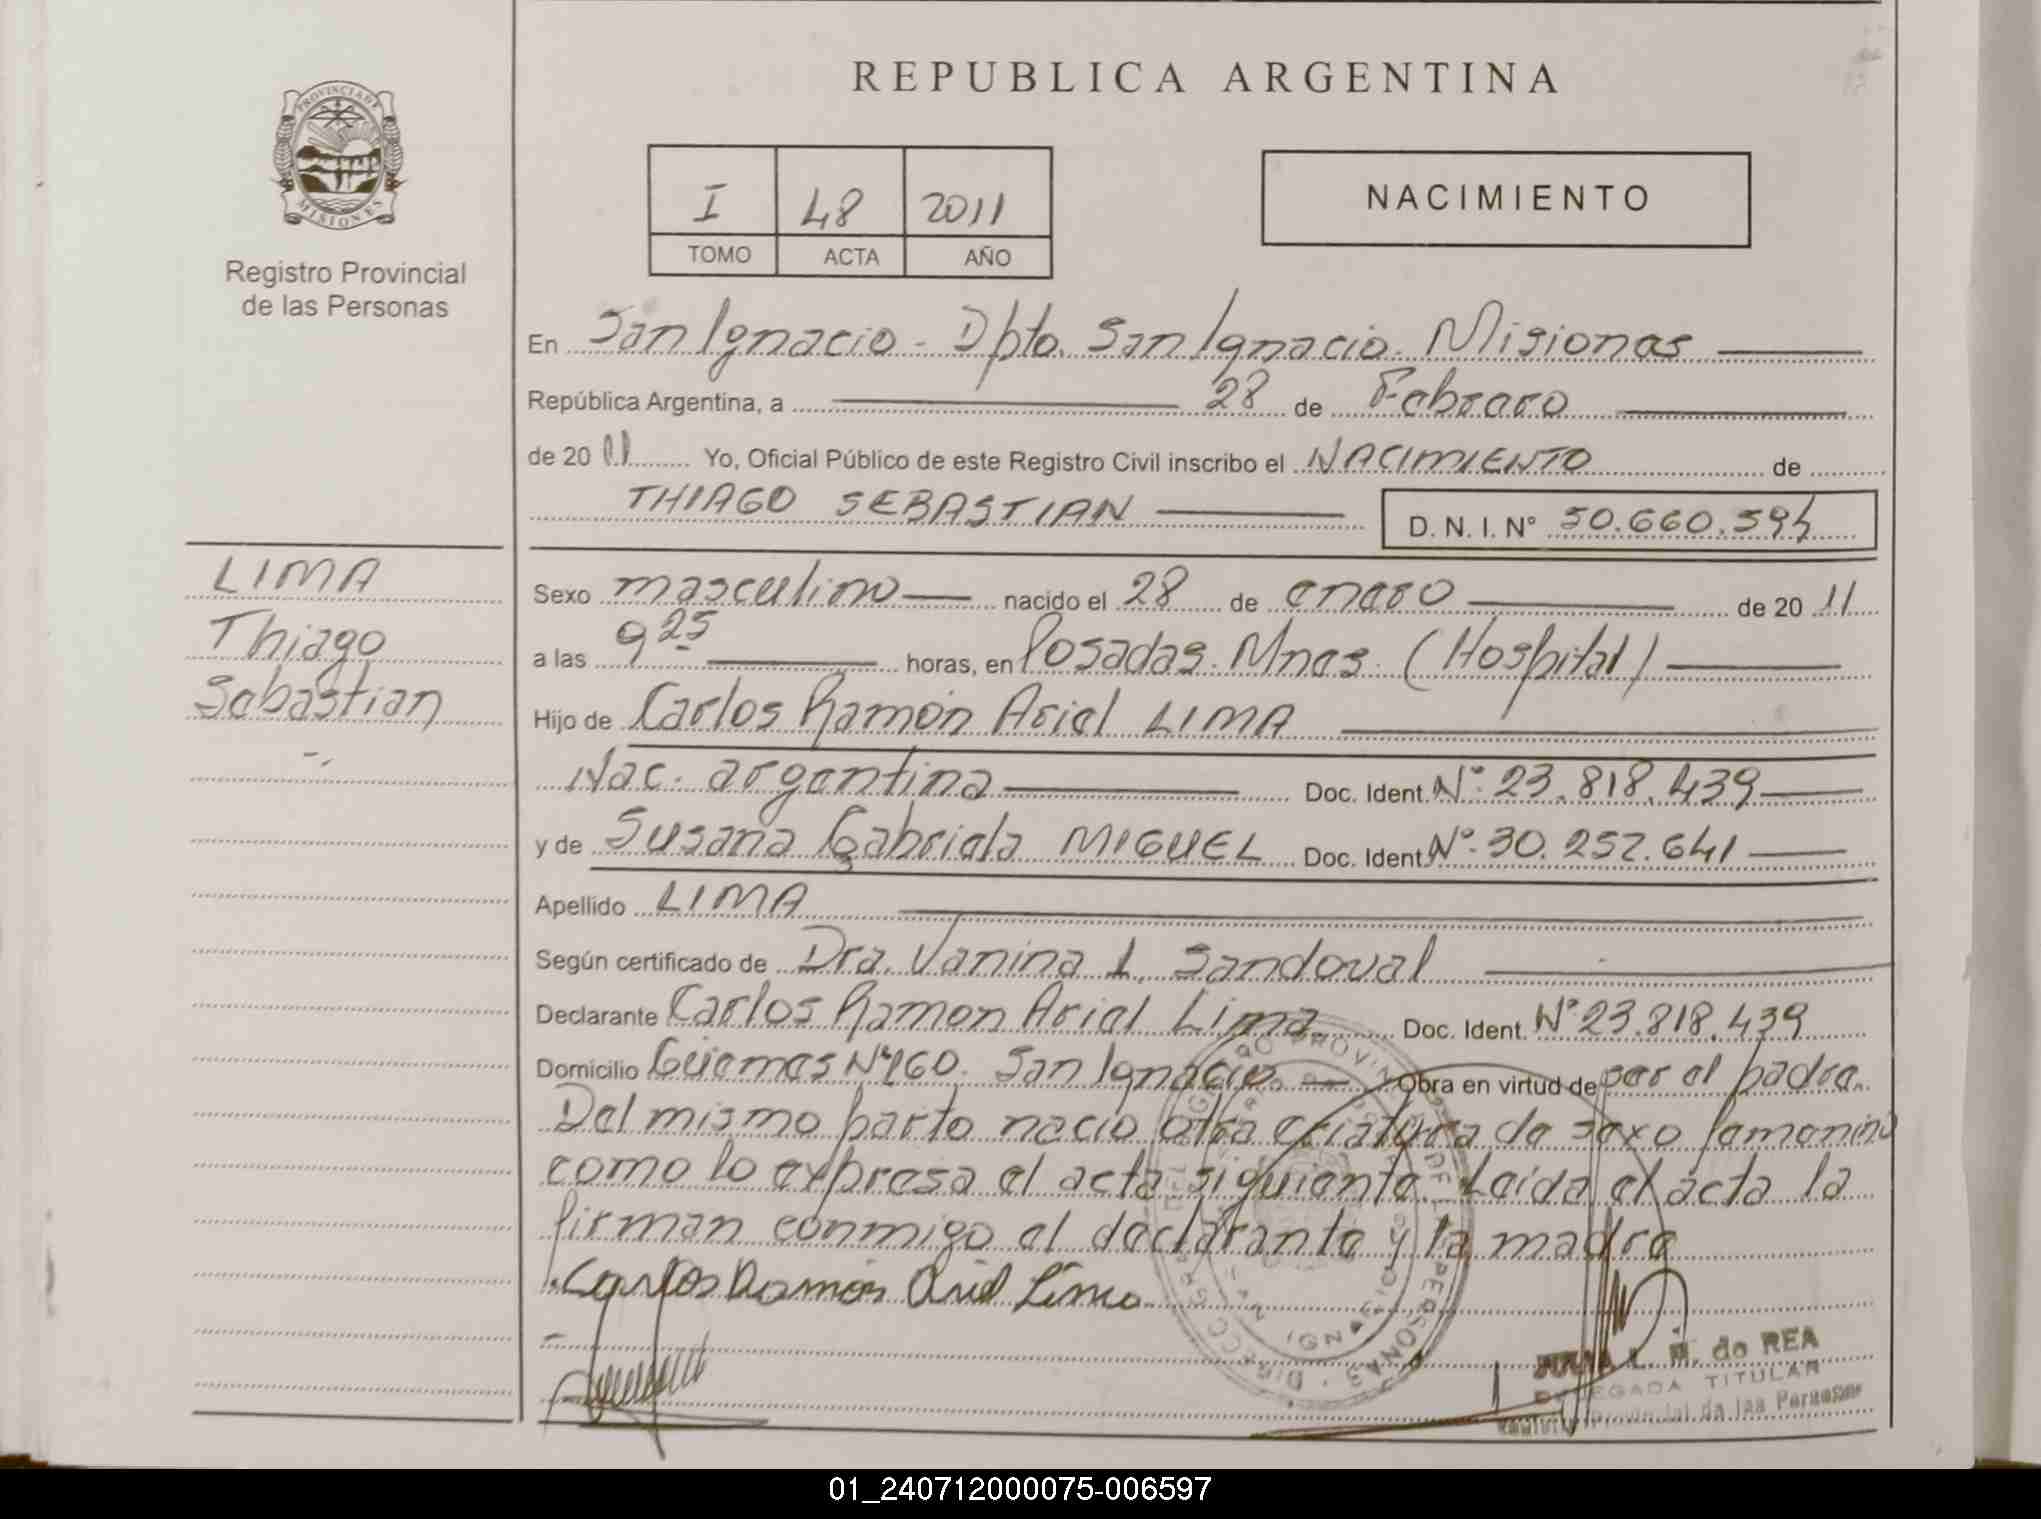 REPUBLICA ARGENTINA
PROVINCIA DE
MISIONES
Registro Provincial
de las Personas
I 48 2011
TOMO ACTA AÑO
NACIMIENTO
En San Ignacio - Dpto. San Ignacio. Misiones
República Argentina, a 28 de Febrero
de 20 11 Yo, Oficial Público de este Registro Civil inscribo el NACIMIENTO de
THIAGO SEBASTIAN D. N. I. Nº 50.660.594
LIMA
Thiago
Sebastian
Sexo masculino nacido el 28 de enero de 20 11
a las 9 25 horas, en Posadas. Mnes. (Hospital)
Hijo de Carlos Ramón Ariel LIMA
Nac. argentina Doc. Ident. Nº 23.818.439
y de Susana Gabriela MIGUEL Doc. Ident. Nº 30.252.641
Apellido LIMA
Según certificado de Dra. Vanina L. Sandoval
Declarante Carlos Ramon Ariel Lima Doc. Ident. Nº 23.818.439
Domicilio Güemes Nº 160. San Ignacio Obra en virtud de ser el padre.
Del mismo parto nacio otra criatura de sexo femenino
como lo expresa el acta siguiente. Leida el acta la
firman conmigo el declarante y la madre
Carlos Ramón Ariel Lima
L. M. de REA
DELEGADA TITULAR
Registro Provincial de las Personas
01_240712000075-006597